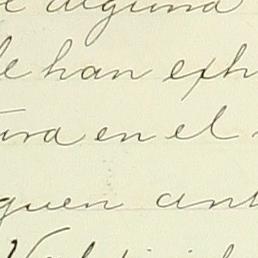 alguna
le han exh
ura en el
guen ant